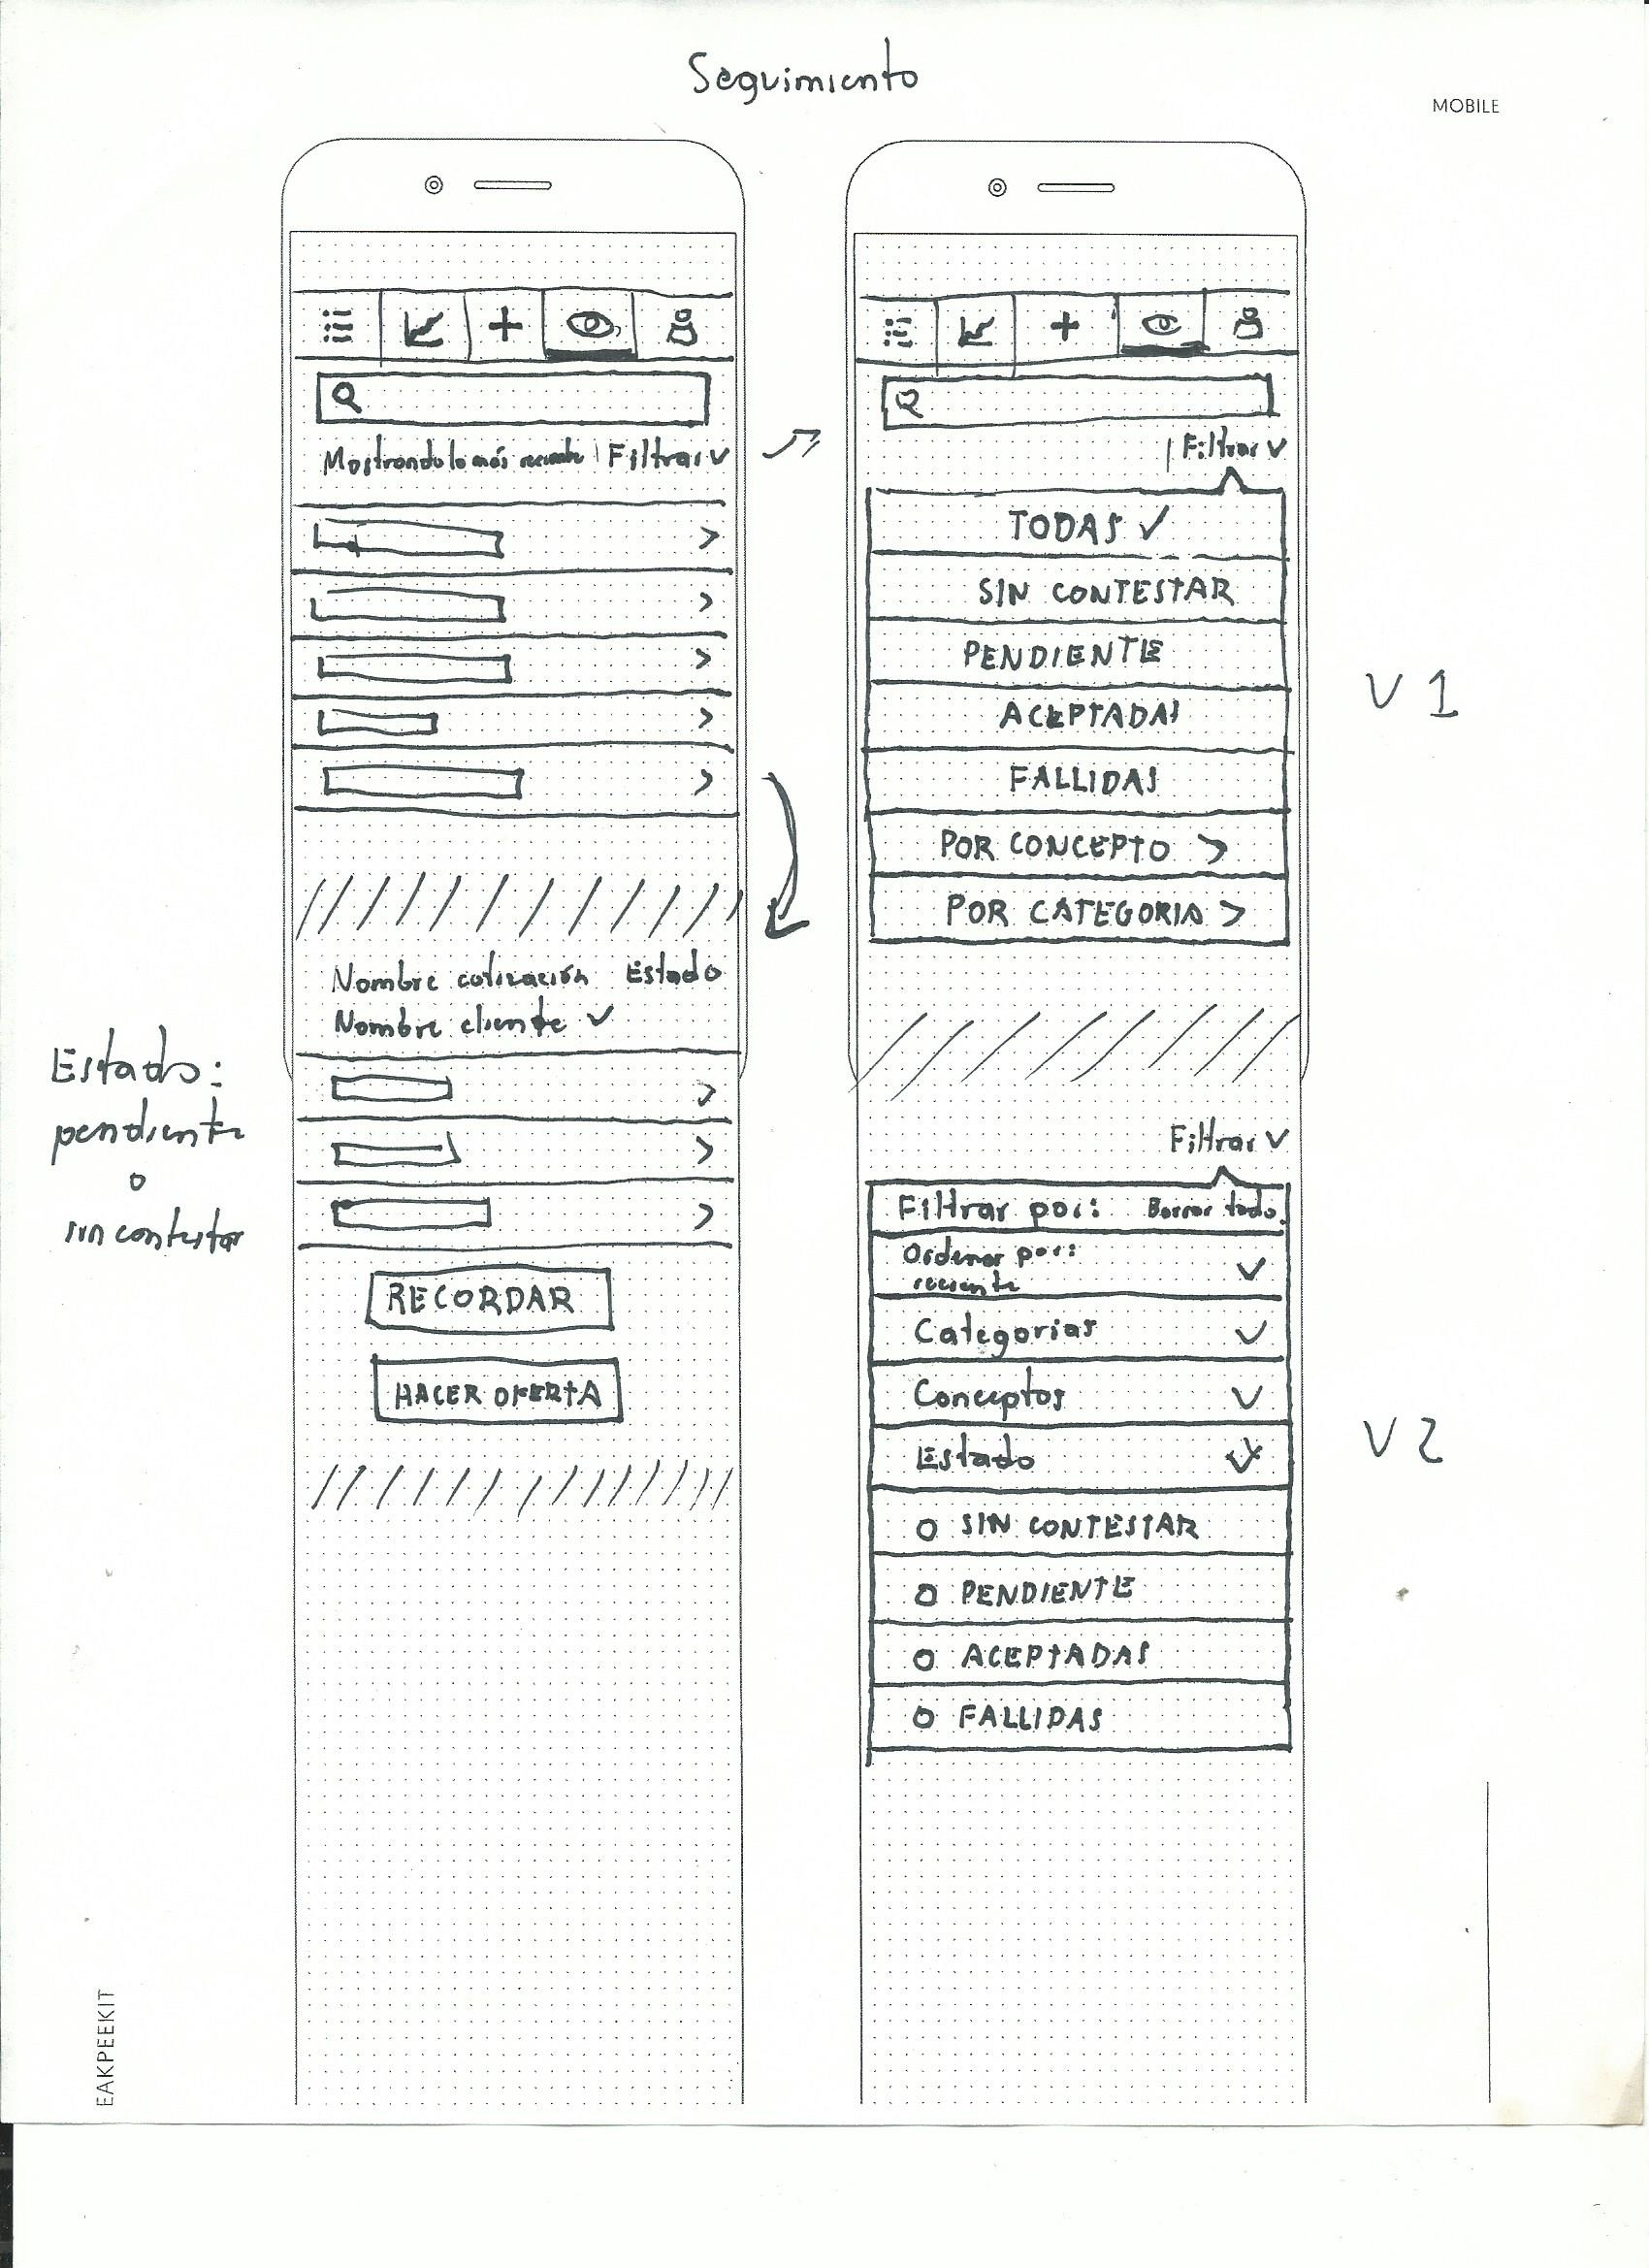 Seguimiento
MOBILE
Mostrando lo más reciente | Filtrar
Nombre cotización Estado
Nombre cliente
Estado:
pendiente
o
sin contestar
RECORDAR
HACER OFERTA
| Filtrar
TODAS
SIN CONTESTAR
PENDIENTE
ACEPTADAS
FALLIDAS
POR CONCEPTO >
POR CATEGORIA >
V1
Filtrar
Filtrar por: Borrar todo
Ordenar por:
reciente
Categorias
Conceptos
Estado
SIN CONTESTAR
PENDIENTE
ACEPTADAS
FALLIDAS
V2
EAKPEEKIT